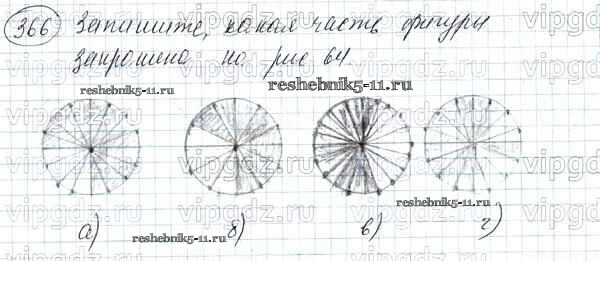 366 Запишите, какая часть фигуры
закрашена на рис 64
reshebnik5-11.ru
reshebnik5-11.ru
reshebnik5-11.ru
а) б) в) г)
reshebnik5-11.ru
vipgdz.ru vipgdz.ru vipgdz.ru
vipgdz.ru vipgdz.ru vipgdz.ru
vipgdz.ru vipgdz.ru vipgdz.ru
vipgdz.ru vipgdz.ru vipgdz.ru